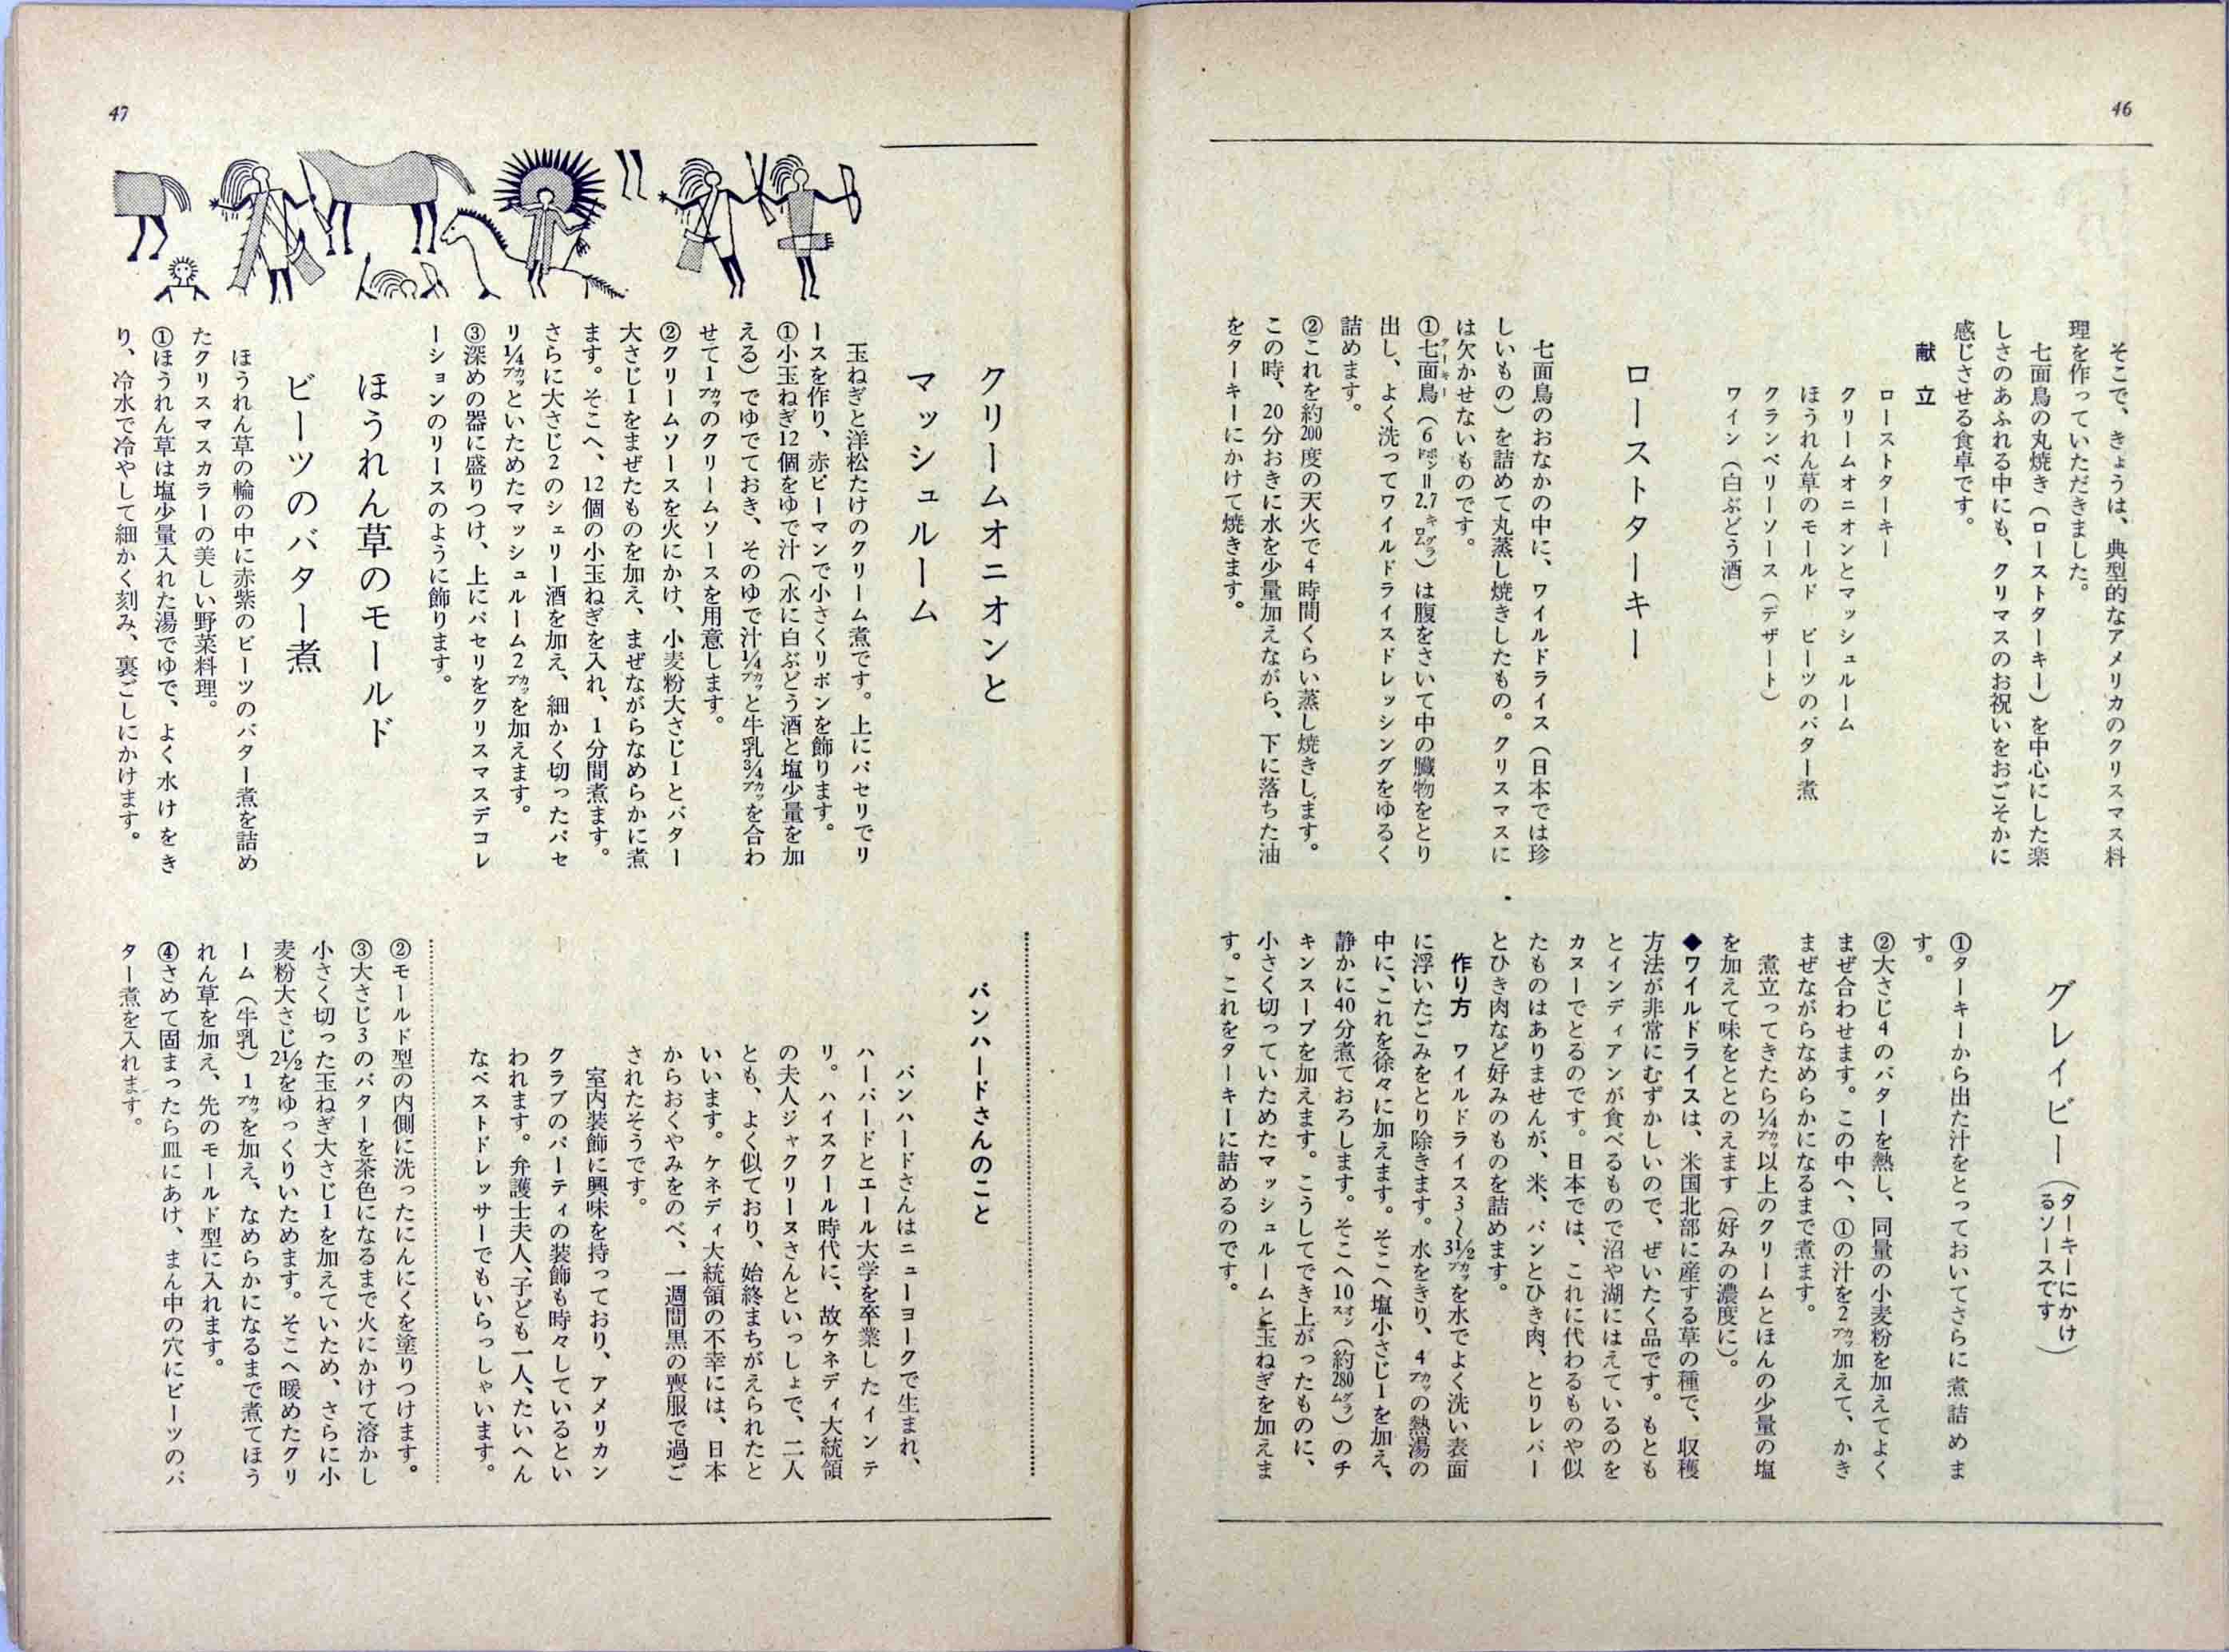 46
そこで、きょうは、典型的なアメリカのクリスマス料
理を作っていただきました。
七面鳥の丸焼き（ローストターキー）を中心にした楽
しさのあふれる中にも、クリマスのお祝いをおごそかに
感じさせる食卓です。
献立
ローストターキー
クリームオニオンとマッシュルーム
ほうれん草のモールド　ビーツのバター煮
クランベリーソース（デザート）
ワイン（白ぶどう酒）
ローストターキー
七面鳥のおなかの中に、ワイルドライス（日本では珍
しいもの）を詰めて丸蒸し焼きしたもの。クリスマスに
は欠かせないものです。
①七面鳥（6ポンド＝2.7キログラム）は腹をさいて中の臓物をとり
ターキー
出し、よく洗ってワイルドライスドレッシングをゆるく
詰めます。
②これを約200度の天火で4時間くらい蒸し焼きします。
この時、20分おきに水を少量加えながら、下に落ちた油
をターキーにかけて焼きます。
グレイビー（ターキーにかけ
るソースです）
①ターキーから出た汁をとっておいてさらに煮詰めま
す。
②大さじ4のバターを熱し、同量の小麦粉を加えてよく
まぜ合わせます。この中へ、①の汁を2カップ加えて、かき
まぜながらなめらかになるまで煮ます。
煮立ってきたら1/4カップ以上のクリームとほんの少量の塩
を加えて味をととのえます（好みの濃度に）。
◆ワイルドライスは、米国北部に産する草の種で、収穫
方法が非常にむずかしいので、ぜいたく品です。もとも
とインディアンが食べるもので沼や湖にはえているのを
カヌーでとるのです。日本では、これに代わるものや似
たものはありませんが、米、パンとひき肉、とりレバー
とひき肉など好みのものを詰めます。
作り方　ワイルドライス3〜3½カップを水でよく洗い表面
に浮いたごみをとり除きます。水をきり、4カップの熱湯の
中に、これを徐々に加えます。そこへ塩小さじ1を加え、
静かに40分煮ておろします。そこへ10オンス（約280グラム）のチ
キンスープを加えます。こうしてでき上がったものに、
小さく切っていためたマッシュルームと玉ねぎを加えま
す。これをターキーに詰めるのです。
47
クリームオニオンと
マッシュルーム
玉ねぎと洋松たけのクリーム煮です。上にパセリでリ
ースを作り、赤ピーマンで小さくリボンを飾ります。
①小玉ねぎ12個をゆで汁（水に白ぶどう酒と塩少量を加
える）でゆでておき、そのゆで汁1/4カップと牛乳3/4カップを合わ
せて1カップのクリームソースを用意します。
②クリームソースを火にかけ、小麦粉大さじ1とバター
大さじ1をまぜたものを加え、まぜながらなめらかに煮
ます。そこへ、12個の小玉ねぎを入れ、1分間煮ます。
さらに大さじ2のシェリー酒を加え、細かく切ったパセ
リ1/4カップといためたマッシュルーム2カップを加えます。
③深めの器に盛りつけ、上にパセリをクリスマスデコレ
ーションのリースのように飾ります。
ほうれん草のモールド
ビーツのバター煮
ほうれん草の輪の中に赤紫のビーツのバター煮を詰め
たクリスマスカラーの美しい野菜料理。
①ほうれん草は塩少量入れた湯でゆで、よく水けをき
り、冷水で冷やして細かく刻み、裏ごしにかけます。
バンハードさんのこと
バンハードさんはニューヨークで生まれ、
ハーバードとエール大学を卒業したインテ
リ。ハイスクール時代に、故ケネディ大統領
の夫人ジャクリーヌさんといっしょで、二人
とも、よく似ており、始終まちがえられたと
いいます。ケネディ大統領の不幸には、日本
からおくやみをのべ、一週間黒の喪服で過ご
されたそうです。
室内装飾に興味を持っており、アメリカン
クラブのパーティの装飾も時々しているとい
われます。弁護士夫人、子ども一人、たいへん
なベストドレッサーでもいらっしゃいます。
②モールド型の内側に洗ったにんにくを塗りつけます。
③大さじ3のバターを茶色になるまで火にかけて溶かし
小さく切った玉ねぎ大さじ1を加えていため、さらに小
麦粉大さじ2½をゆっくりいためます。そこへ暖めたクリ
ーム（牛乳）1カップを加え、なめらかになるまで煮てほう
れん草を加え、先のモールド型に入れます。
④さめて固まったら皿にあけ、まん中の穴にビーツのバ
ター煮を入れます。